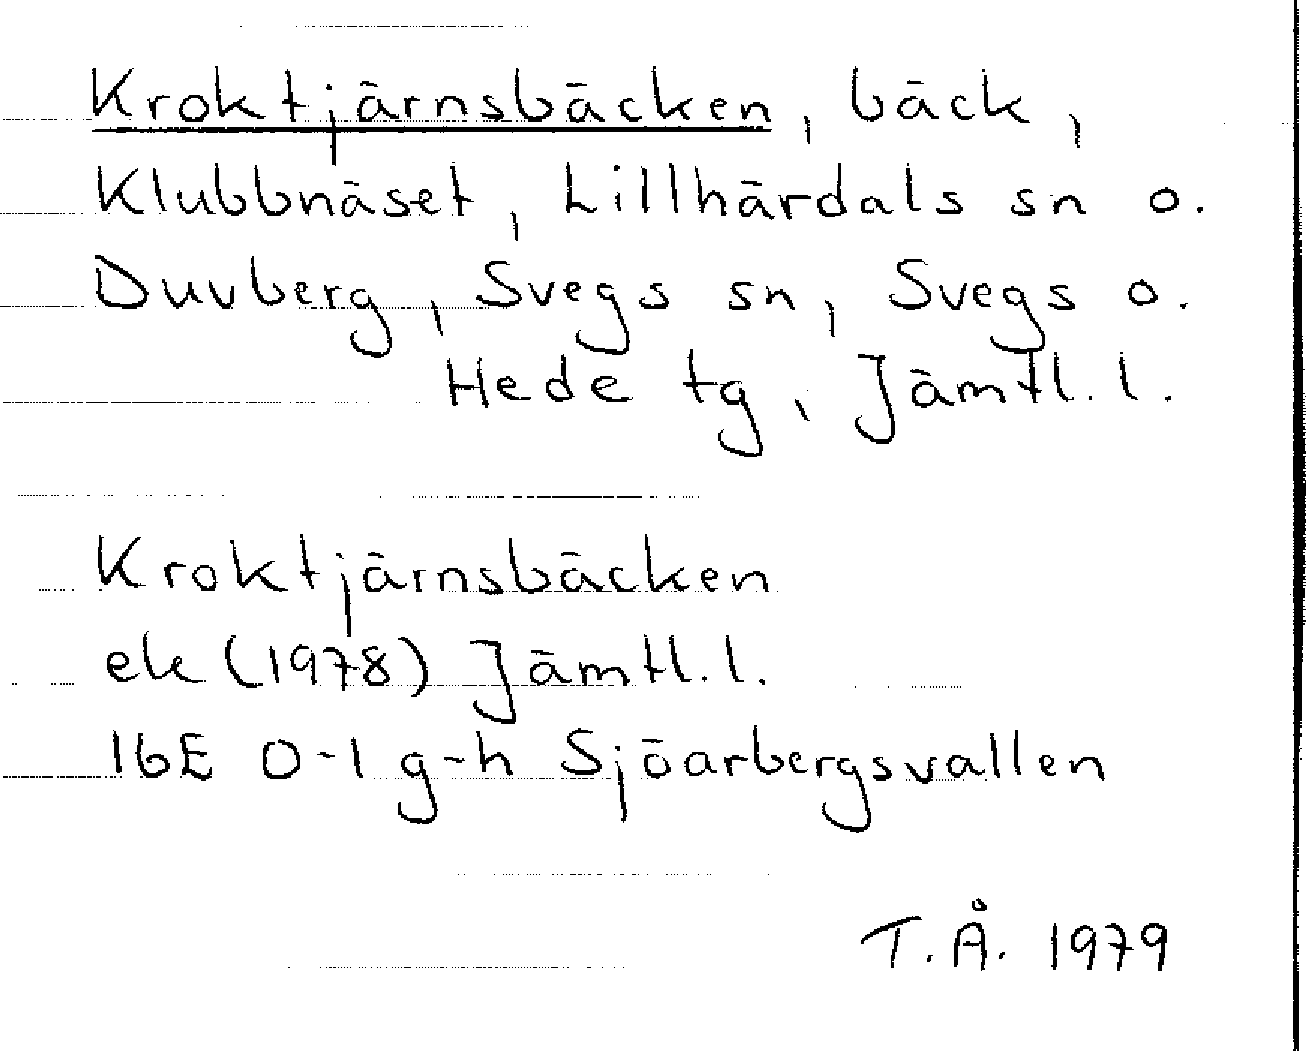 Kroktjärnsbäcken, bäck,
Klubbnäset, Lillhärdals sn o.
Duvberg, Svegs sn, Svegs o.
Hede tg, Jämtl. l.
Kroktjärnsbäcken
ek (1978) Jämtl. l.
16E 0-1 g-h Sjöarbergsvallen
T.Å. 1979